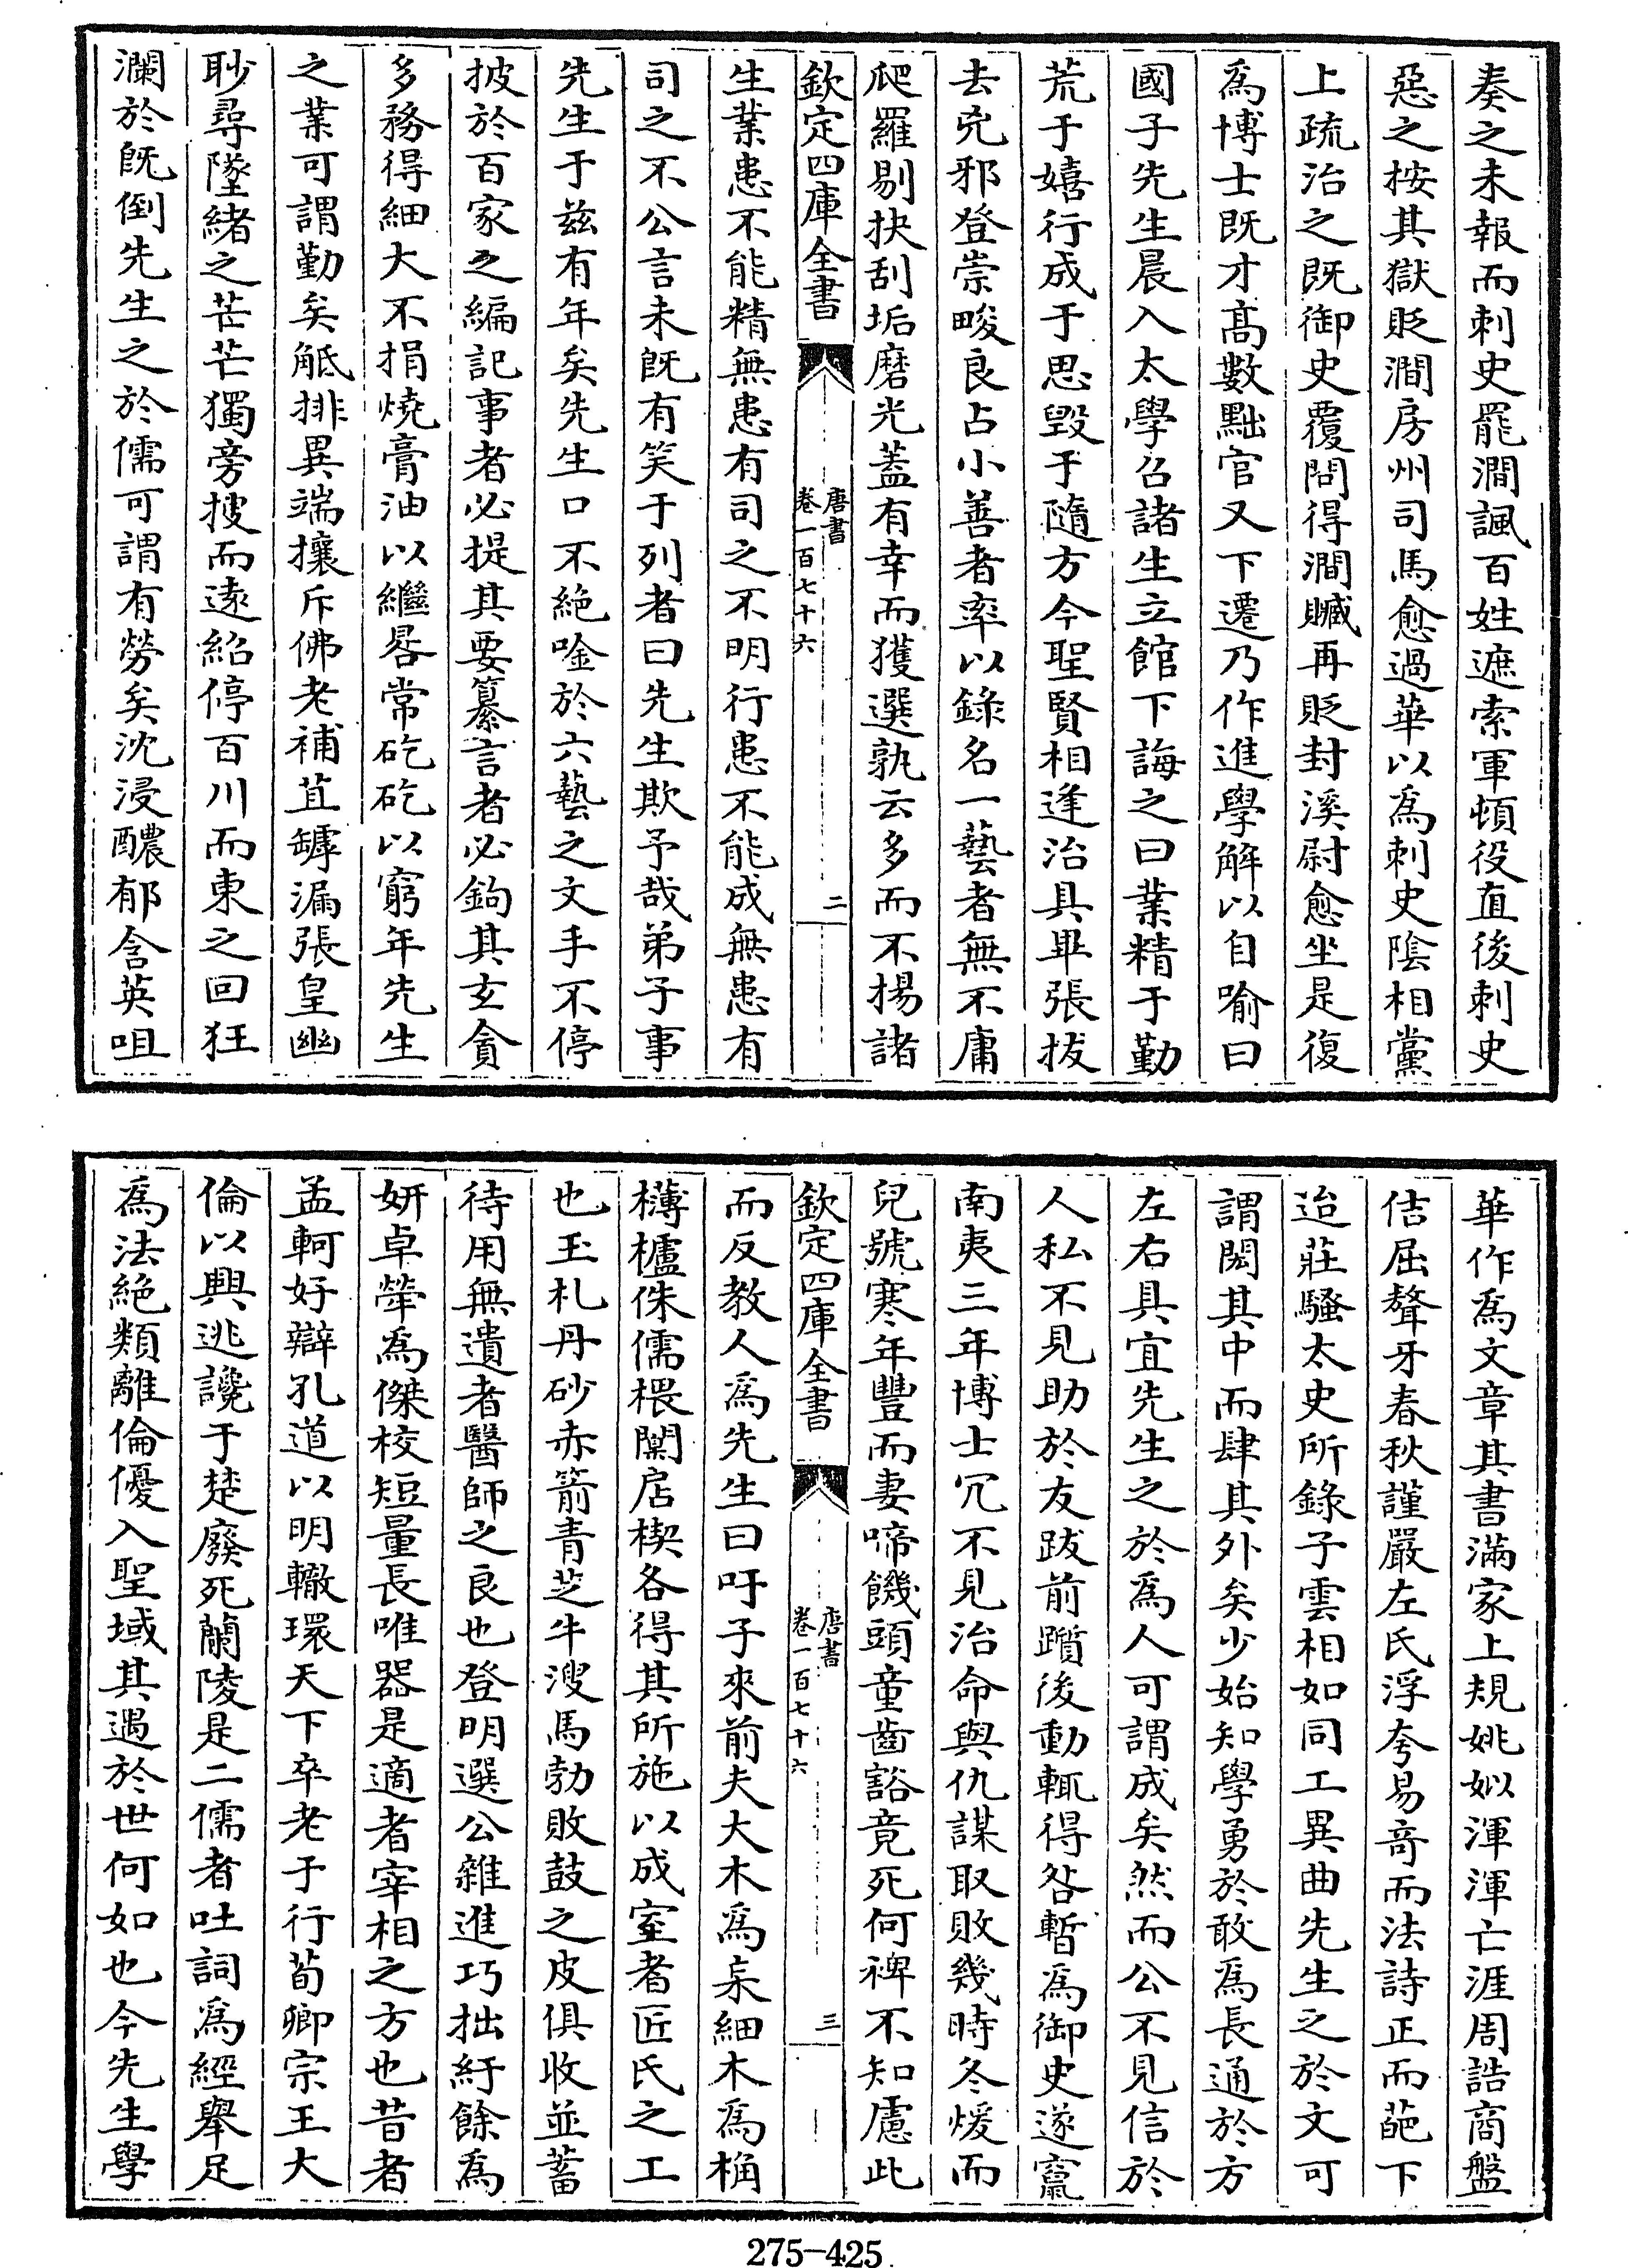 奏之未報而刺史罷澗諷百姓遮索軍頓役直後刺史
惡之按其獄貶澗房州司馬愈過華以為刺史陰相黨
上疏治之既御史覆問得澗贓再貶封溪尉愈坐是復
為博士既才高數黜官又下遷乃作進學解以自喻曰
國子先生晨入太學召諸生立館下誨之曰業精于勤
荒于嬉行成于思毀于隨方今聖賢相逢治具畢張拔
去兇邪登崇畯良占小善者率以錄名一藝者無不庸
爬羅剔抉刮垢磨光蓋有幸而獲選孰云多而不揚諸
欽定四庫全書
唐書
卷一百七十六
二
生業患不能精無患有司之不明行患不能成無患有
司之不公言未既有笑于列者曰先生欺予哉弟子事
先生于茲有年矣先生口不絶唫於六藝之文手不停
披於百家之編記事者必提其要纂言者必鉤其玄貪
多務得細大不捐燒膏油以繼晷常矻矻以窮年先生
之業可謂勤矣觝排異端攘斥佛老補苴罅漏張皇幽
眇尋墜緒之芒芒獨旁搜而遠紹停百川而東之回狂
瀾於既倒先生之於儒可謂有勞矣沈浸醲郁含英咀
華作為文章其書滿家上規姚姒渾渾亡涯周誥商盤
佶屈聱牙春秋謹嚴左氏浮夸易奇而法詩正而葩下
迨莊騷太史所錄子雲相如同工異曲先生之於文可
謂閎其中而肆其外矣少始知學勇於敢為長通於方
左右具宜先生之於為人可謂成矣然而公不見信於
人私不見助於友跋前躓後動輒得咎暫為御史遂竄
南夷三年博士冗不見治命與仇謀取敗幾時冬煖而
兒號寒年豐而妻啼饑頭童齒豁竟死何裨不知慮此
欽定四庫全書
唐書
卷一百七十六
三
而反教人為先生曰吁子來前夫大木為杗細木為桷
欂櫨侏儒椳闑扂楔各得其所施以成室者匠氏之工
也玉札丹砂赤箭青芝牛溲馬勃敗鼓之皮俱收並蓄
待用無遺者醫師之良也登明選公雜進巧拙紆餘為
妍卓犖為傑校短量長唯器是適者宰相之方也昔者
孟軻好辯孔道以明轍環天下卒老于行荀卿宗王大
倫以興逃讒于楚廢死蘭陵是二儒者吐詞為經舉足
為法絶類離倫優入聖域其遇於世何如也今先生學
275-425